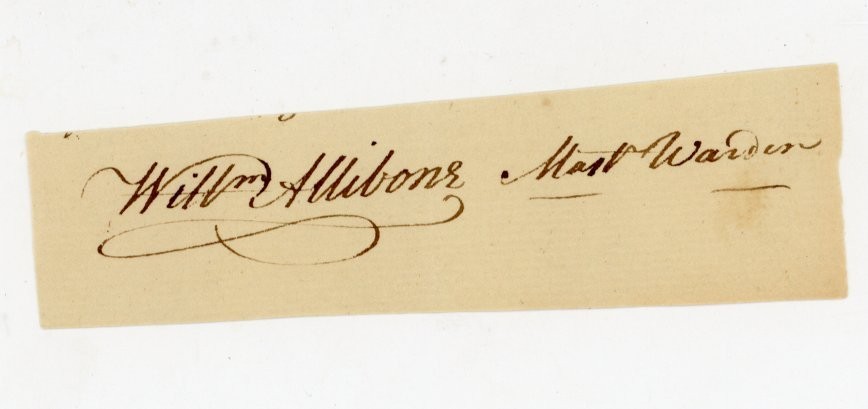 Willm Allibone Mastr Warden